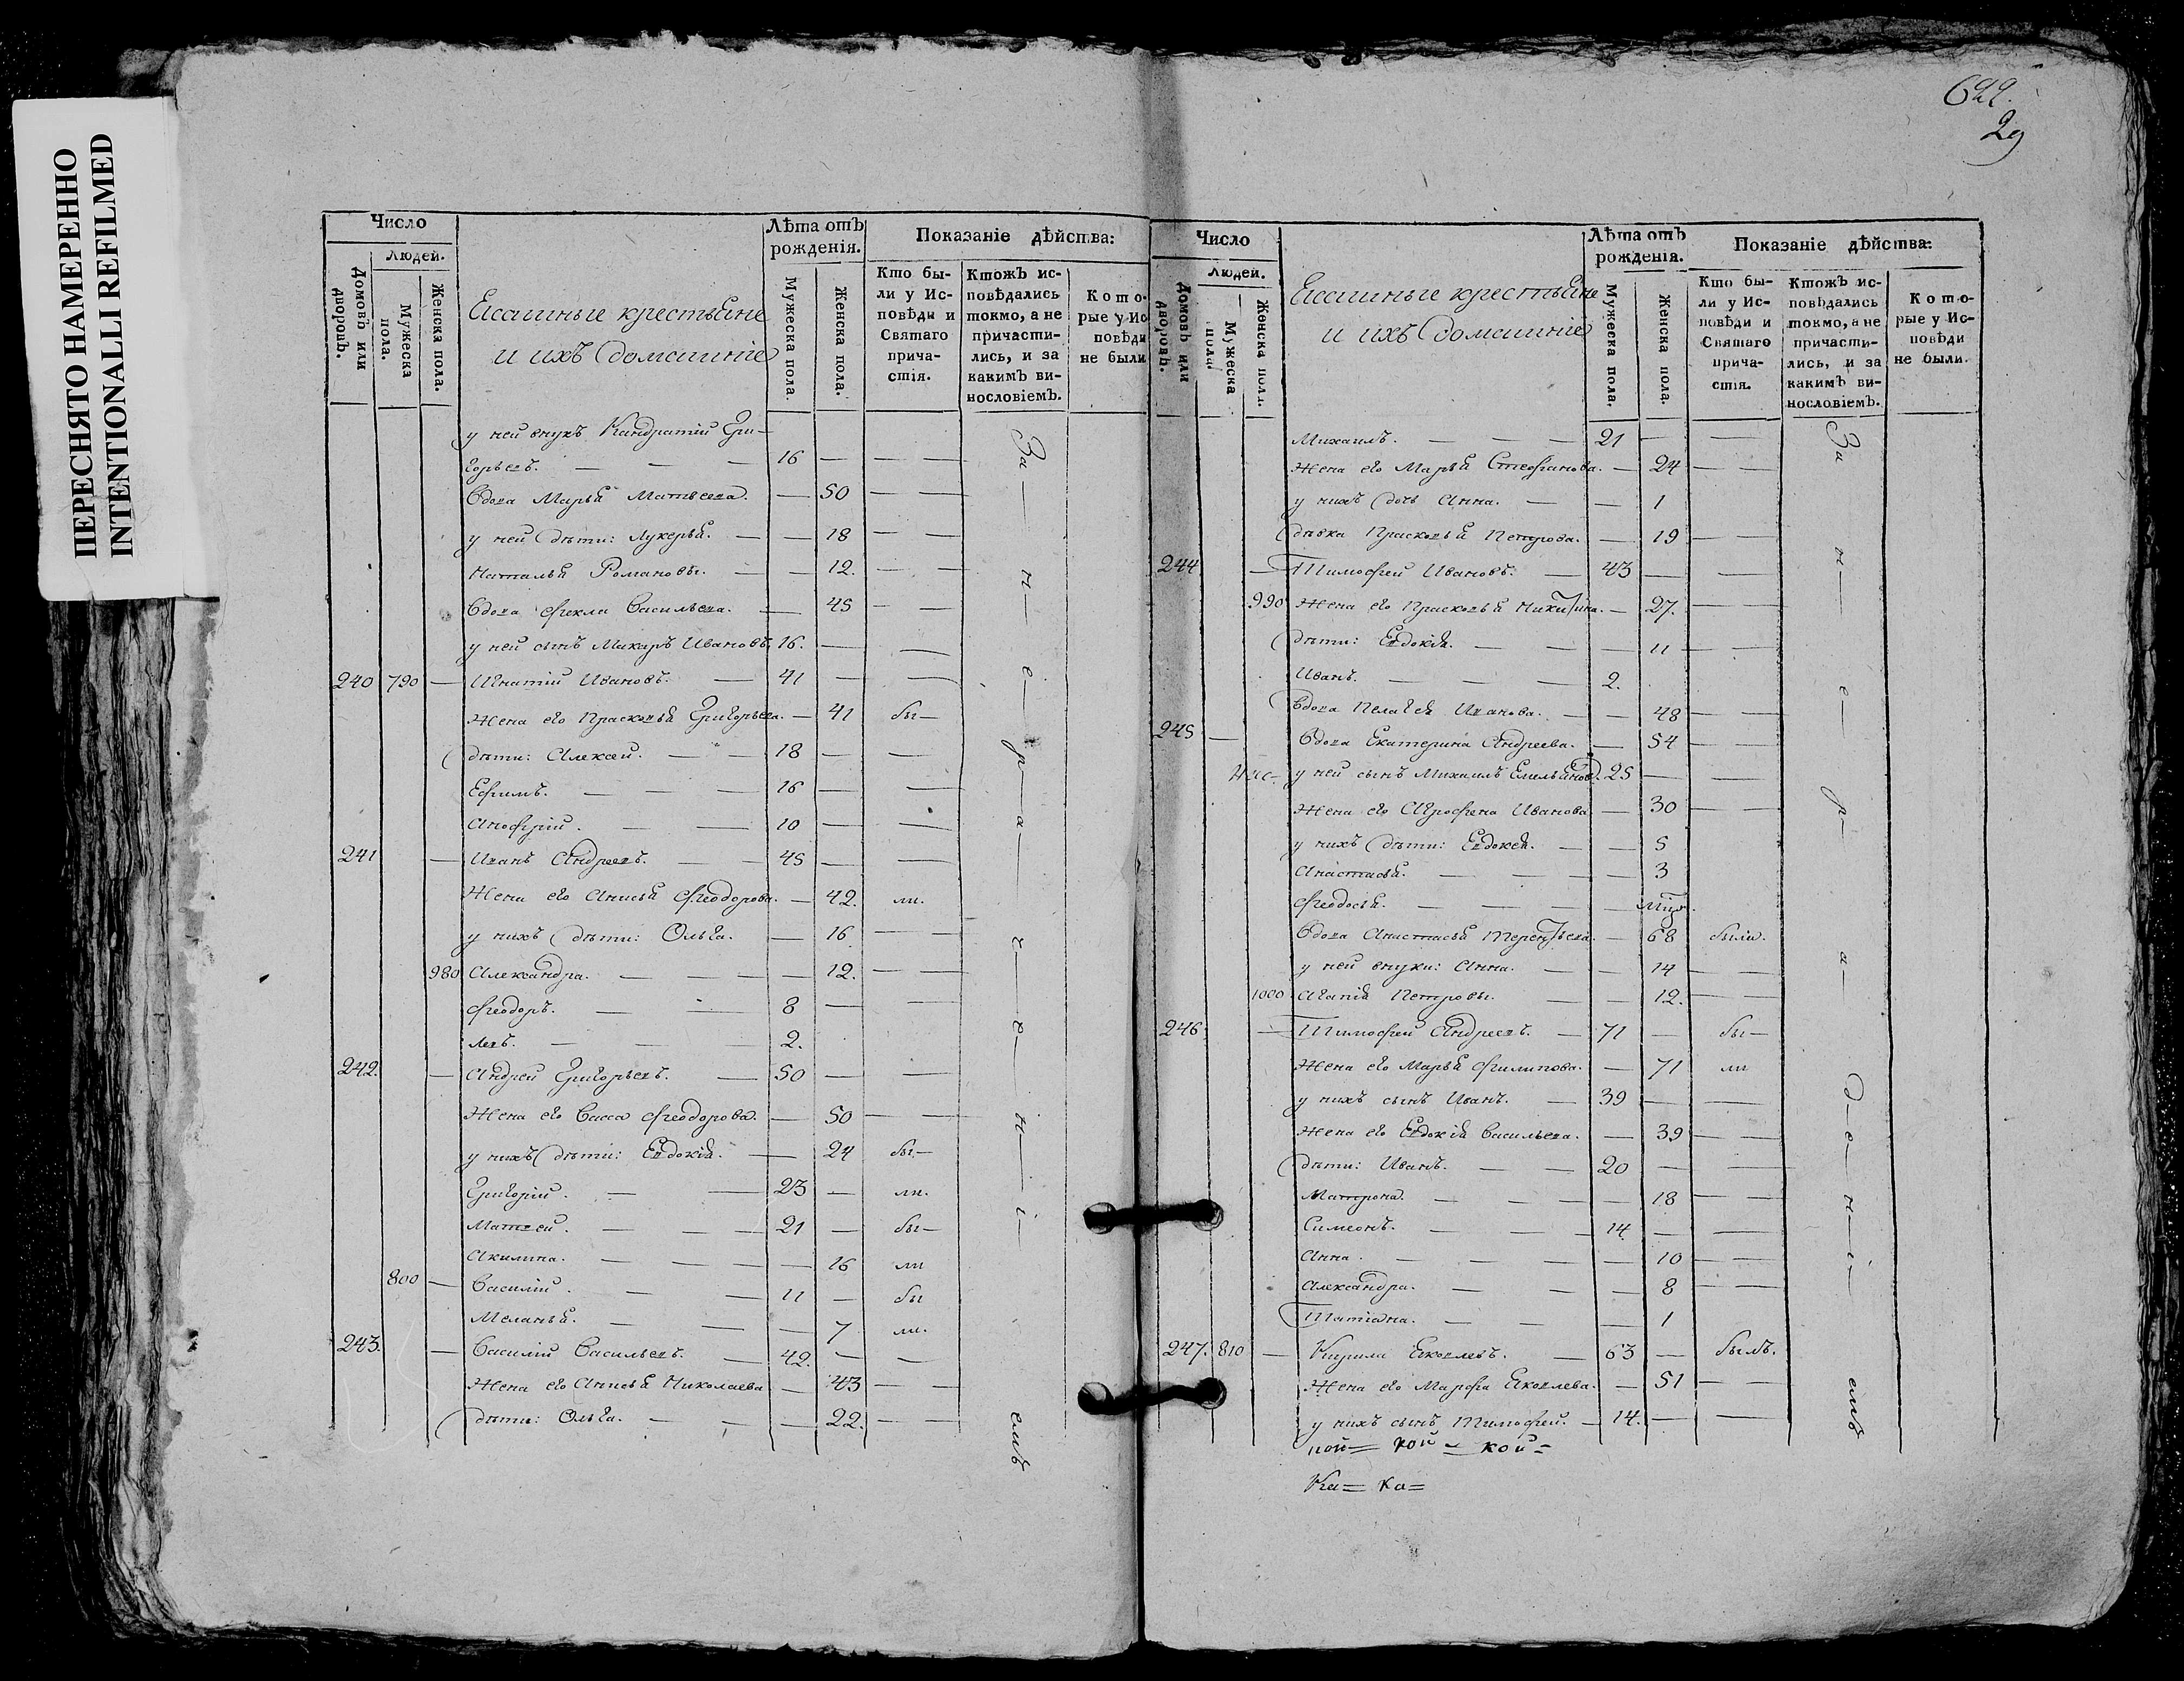 ПЕРЕСНЯТО НАМЕРЕННО
INTENTIONALLI REFILMED
Число
Людей.
Домовъ или дворовъ.
Мужеска пола.
Женска пола.
Ясашные крестьяне
и ихъ домашніе
Лѣта отъ рожденія.
Мужеска пола.
Женска пола.
Показаніе дѣйства:
Кто были у Исповѣди и Святаго причастія.
Ктожъ исповѣдались токмо, а не причастились, и за какимъ винословіемъ.
Которые у Исповѣди не были
у ней внукъ Кандратій Гри-
горьевъ. — — — 16 — — —
Вдова Марья Матвеева. — 50 — —
у ней дѣти: Лукерья. — — 18 — —
Наталья Романовы. — — 12. — —
Вдова Фекла Васильева. — 45 — —
у ней сынъ Макаръ Ивановъ. 16. — —
240 790 — Игнатій Ивановъ. — 41 — —
Жена его Прасковья Григорьева. — 41 бы—
дѣти: Алексей. — — 18 — —
Ефимъ. — — — 16 — —
Аноφрій. — — 10 — —
241 — Иванъ Андреевъ. — — 45 — —
Жена его Анисья Феодорова. — 42. ли.
у нихъ дѣти: Ольга. — 16 — —
980 Александра. — — — — 12. — —
Феодоръ. — — 8 — —
Левъ. — — — 2.
242. — Андрей Григорьевъ. — 50 — —
Жена его Васса Феодорова. — 50 — —
у нихъ дѣти: Евдокія. — — 24 бы—
Григорій. — — 23 — ли.
Матвей. — — — 21 — бы—
Акилина. — — — — 16 ли
800 — Василій. — — 11 — бы
Меланья. — — — 7 ли.
243. — Василій Васильевъ. — 42. — —
Жена его Анисья Николаева — 43 — —
дѣти: Ольга. — — — 22. —
За—н—е—р—а—ч—е—н—і—емъ
622.
29
Число
Людей.
Домовъ или дворовъ.
Мужеска пола.
Женска пола.
Ясашные крестьяне
и ихъ домашніе
Лѣта отъ рожденія.
Мужеска пола.
Женска пола.
Показаніе дѣйства:
Кто были у Исповѣди и Святаго причастія.
Ктожъ исповѣдались токмо, а не причастились, и за какимъ винословіемъ.
Которые у Исповѣди не были.
Михаилъ. — — — 21 — —
Жена его Марья Стефанова. — 24 — —
у нихъ дочь Анна. — — 1
дѣвка Прасковья Петрова. — 19 — —
244 — Тимофей Ивановъ. — 43 — —
990 Жена его Прасковья Никитина. — 27. — —
дѣти: Евдокія. — — — 11 — —
Иванъ. — — — 2.
Вдова Пелагея Иванова. — — 48 — —
245 — Вдова Екатерина Андреева. — 54 — —
у ней сынъ Михаилъ Емельяновъ. 25 — —
Жена его Агрофена Иванова — 30 — —
у нихъ дѣти: Евдокея. — — 5
Анастасья. — — — — 3
Феодосья. — — — —
Вдова Анастасья Терентьева. — 68 были.
у ней внуки: Анна. — — 14 — —
1000 Агапія Петровы. — — 12. — —
246 — Тимофей Андреевъ. — 71 — бы—
Жена его Марья Филипова. — 71 ли
у нихъ сынъ Иванъ. — 39 — —
Жена его Евдокія Васильева. — 39 — —
дѣти: Иванъ. — — 20 — —
Матрона. — — — — 18 — —
Симеонъ. — — — 14 — —
Анна. — — — — 10 — —
Александра. — — — 8 — —
Татіана. — — — 1
247. 810 — Кирила Яковлевъ. — 63 — былъ.
Жена его Марфа Яковлева. — 51 — —
у нихъ сынъ Тимофей. — 14. — —
За—н—е—р—а—д—е—н—і—емъ
ной= кой= кой=
Ка= ка=